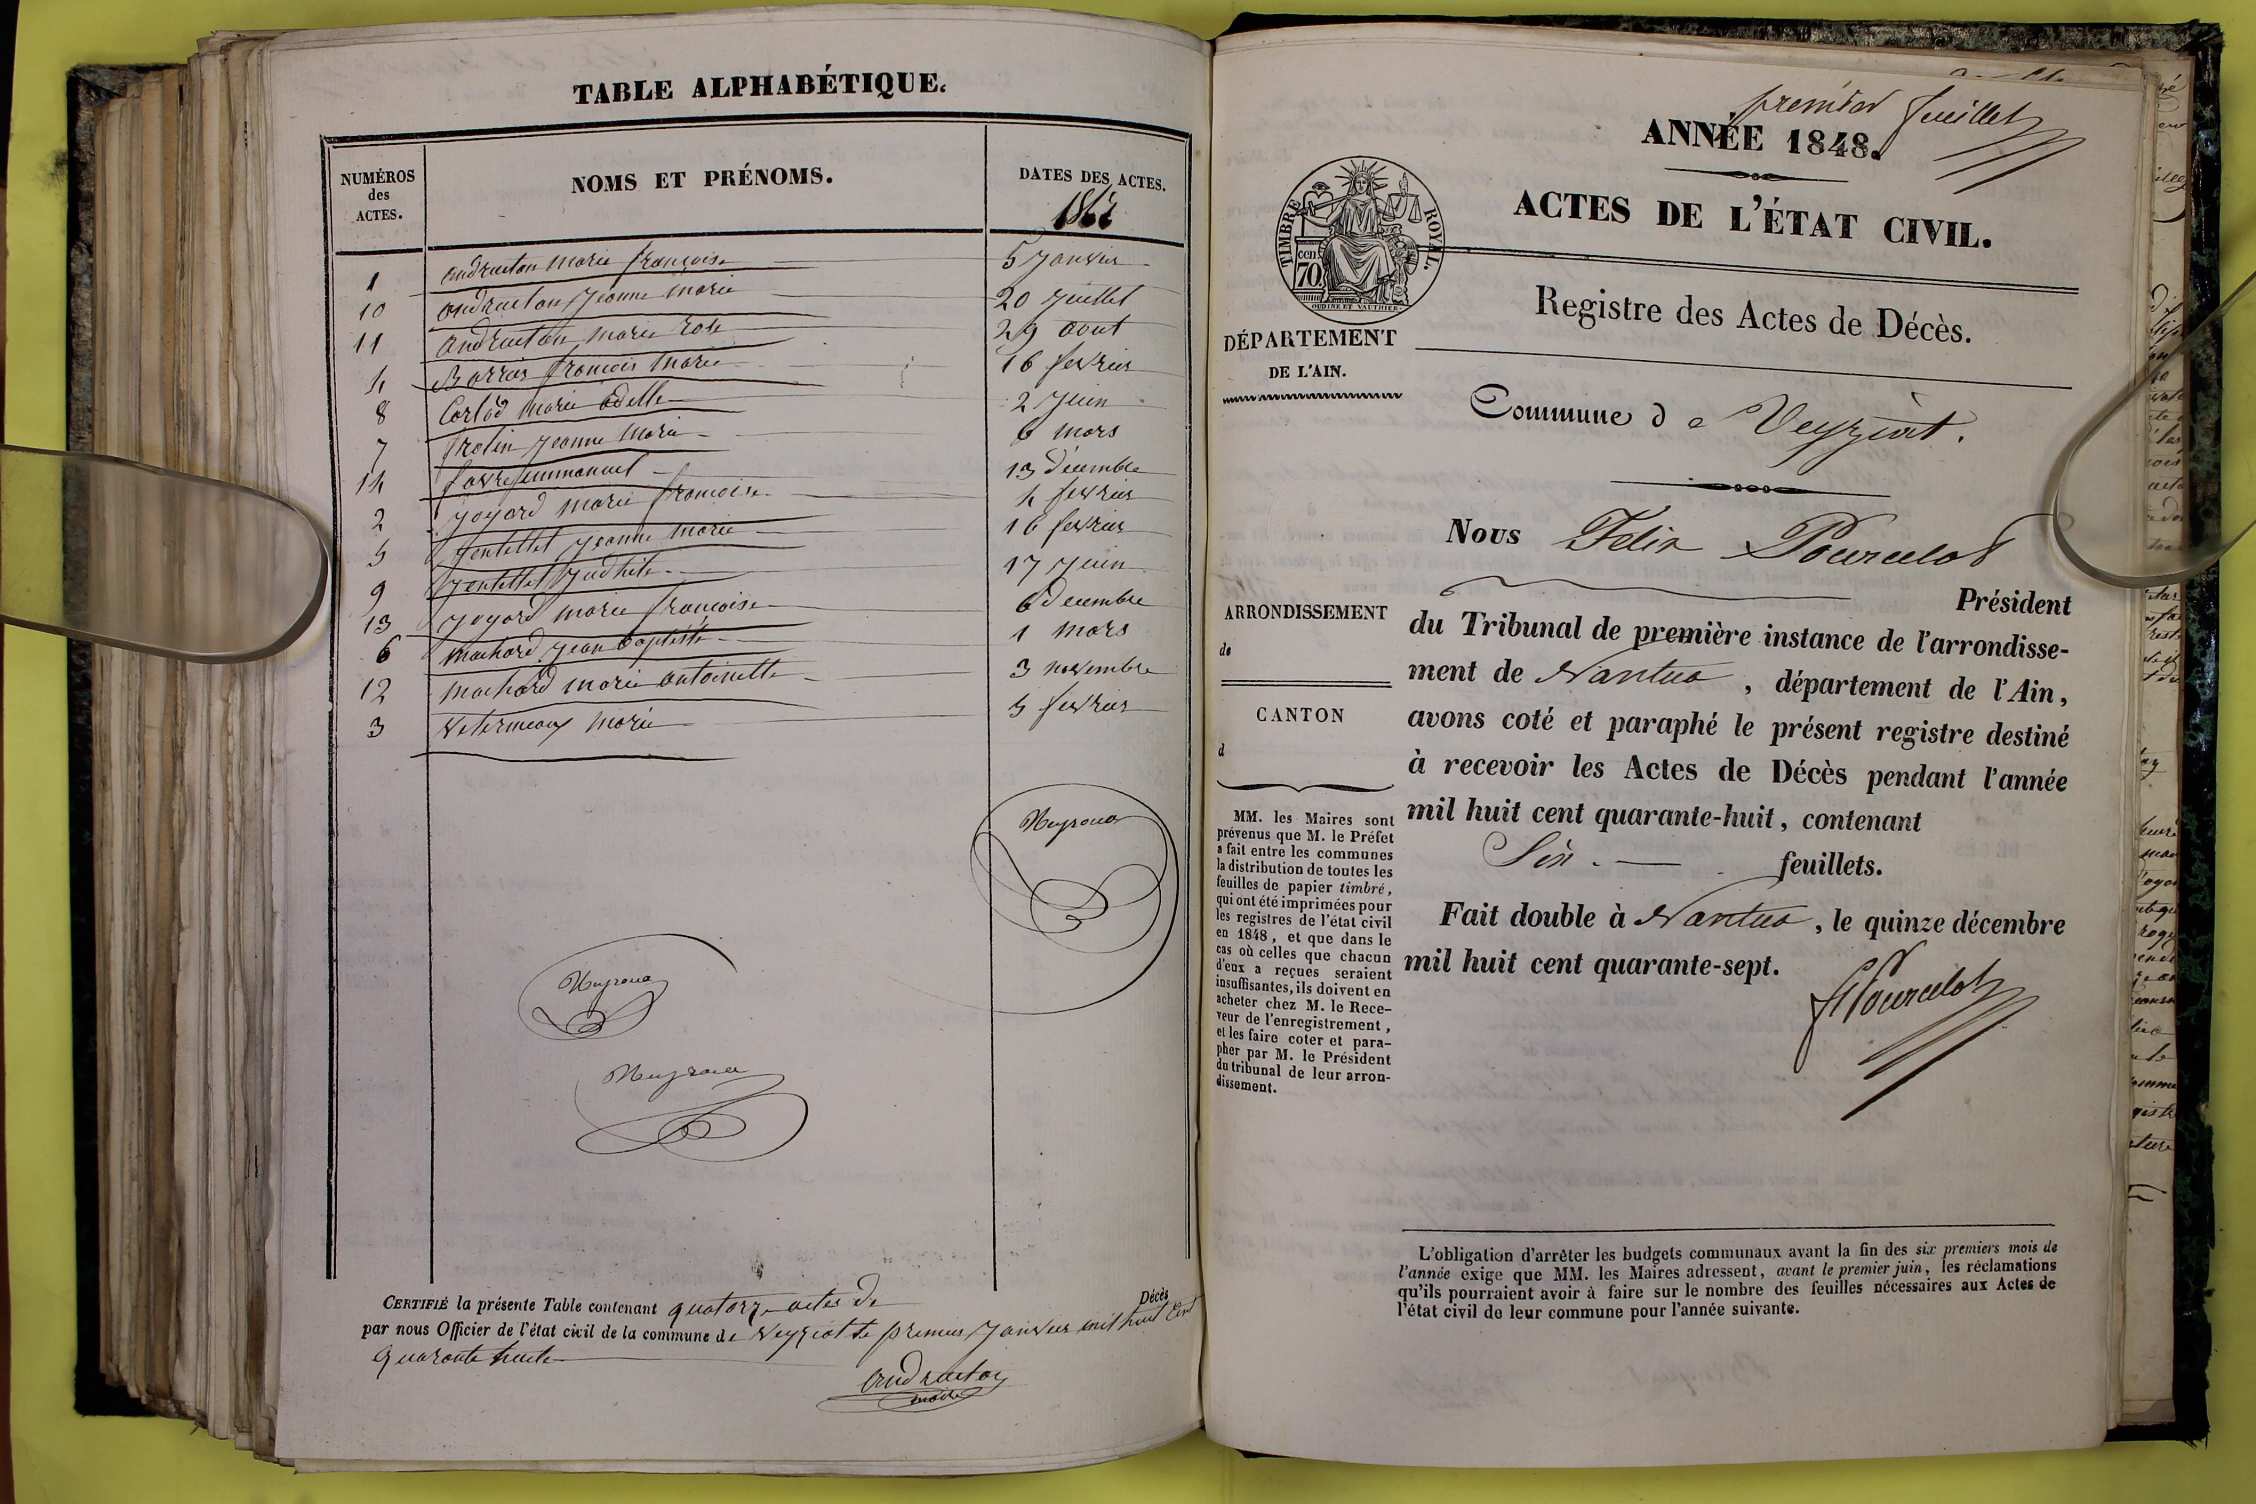 TABLE ALPHABÉTIQUE.
NUMÉROS des ACTES.
NOMS ET PRÉNOMS.
DATES DES ACTES.
1847
1 andruetan marie françoise 5 janvier
10 andruetan jeanne marie 20 juillet
11 andruetan marie rose 29 aout
4 françois marie 16 fevrier
8 marie adelle 2 juin
7 jeanne marie 6 mars
14 favre emmanuel 13 décembre
2 joyard marie françoise 4 fevrier
5 jentellet jeanne marie 16 fevrier
9 jentellet judhite 17 juin
13 joyard marie françoise 6 decembre
6 machard jean baptiste 1 mars
12 machard marie antoinette 3 novembre
3 marie 5 fevrier
CERTIFIÉ la présente Table contenant quatorze actes de Décès
par nous Officier de l'état civil de la commune de Veyziat le premier janvier mil huit cent
quarante huit
maire
premier feuillet
ANNÉE 1848.
ACTES DE L'ÉTAT CIVIL.
TIMBRE ROYAL.
70 cen
OUDINÉ ET VAUTHIER
Registre des Actes de Décès.
DÉPARTEMENT
DE L'AIN.
Commune de Veyziat.
Nous Félix Pourcelot
Président
ARRONDISSEMENT
de
CANTON
d
du Tribunal de première instance de l'arrondisse-
ment de Nantua, département de l'Ain,
avons coté et paraphé le présent registre destiné
à recevoir les Actes de Décès pendant l'année
mil huit cent quarante-huit, contenant
Six feuillets.
Fait double à Nantua, le quinze décembre
mil huit cent quarante-sept.
Pourcelot
MM. les Maires sont
prévenus que M. le Préfet
a fait entre les communes
la distribution de toutes les
feuilles de papier timbré,
qui ont été imprimées pour
les registres de l'état civil
en 1848, et que dans le
cas où celles que chacun
d'eux a reçues seraient
insuffisantes, ils doivent en
acheter chez M. le Rece-
veur de l'enregistrement,
et les faire coter et para-
pher par M. le Président
du tribunal de leur arron-
dissement.
L'obligation d'arrêter les budgets communaux avant la fin des six premiers mois de
l'année exige que MM. les Maires adressent, avant le premier juin, les réclamations
qu'ils pourraient avoir à faire sur le nombre des feuilles nécessaires aux Actes de
l'état civil de leur commune pour l'année suivante.